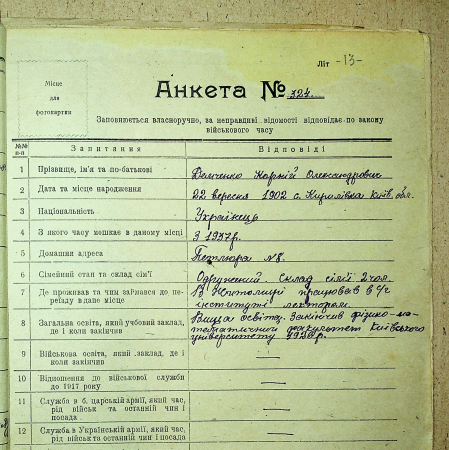 Літ -13-
Місце
для
фотокартки
Анкета № 324.
Заповнюється власноручно, за неправдиві відомості відповідає по закону
військового часу
№№ п-п Запитання Відповіді
1 Прізвище, ім'я та по-батькові Демченко Корній Олександрович
2 Дата та місце народження 22 вересня 1902 с. Кирилівка Київ. обл.
3 Національність Українець
4 З якого часу мешкає в даному місці З 1937 р.
5 Домашня адреса Петлюра №8.
6 Сімейний стан та склад сім'ї Одружений. Склад сімї 2 чол.
7 Де проживав та чим займався до пе- В Житомирі працював в
реїзду в дане місце інституті лектором.
8 Загальна освіта, який учбовий заклад, Вища освіта. Закінчив фізико-ма-
де і коли закінчив тематичний факультет Київського
університету
9 Військова освіта, який заклад, де і —
коли закінчив
10 Відношення до військової служби —
до 1917 року
11 Служба в б. царській армії, який час, —
рід військ та останній чин і
посада
12 Служба в Українській армії, який час, —
рід військ та останній чин і посада